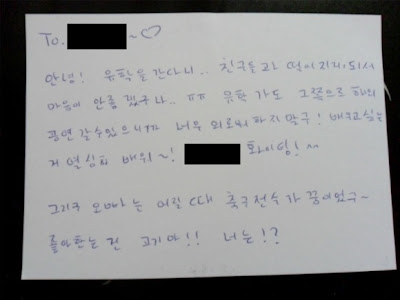 To. ~♡
안녕! 유학을 간다니.. 친구들과 떨어지게 되서
마음이 안좋겠구나.. ㅠㅠ 유학 가도 그쪽으로 해외
공연 갈수있으니까 너무 외로워하지말구! 배우고싶은
거 열심히 배워~! 화이팅! ^^
그리구 오빠는 어릴 때 축구선수가 꿈이었구~
좋아하는 건 고기야!! 너는!?